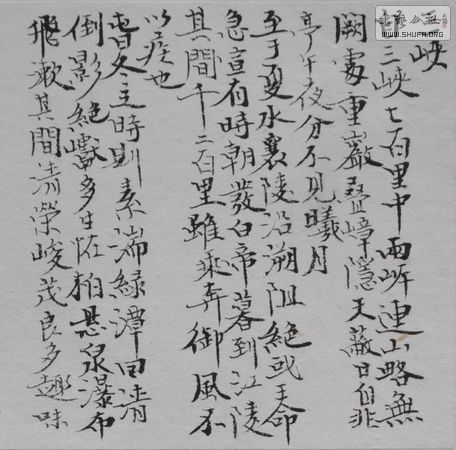 三峽
自三峽七百里中兩岸連山略無
闕處重巖疊嶂隱天蔽日自非
亭午夜分不見曦月
至于夏水襄陵沿溯阻絕或王命
急宣有時朝發白帝暮到江陵
其間千二百里雖乘奔御風不
以疾也
春冬之時則素湍綠潭回清
倒影絕巘多生怪柏懸泉瀑布
飛漱其間清榮峻茂良多趣味
WWW.SHUFA.ORG